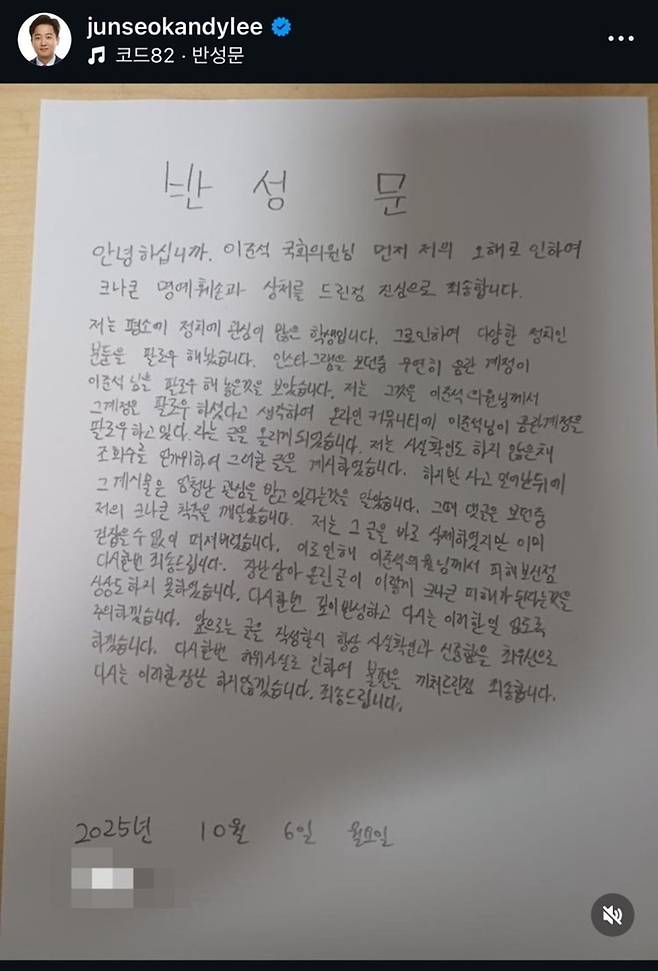 junseokandylee
코드82 · 반성문
반 성 문
안녕하십니까. 이준석 국회의원님 먼저 저의 오해로 인하여
크나큰 명예훼손과 상처를 드린점 진심으로 죄송합니다.
저는 평소에 정치에 관심이 많은 학생입니다. 그로인하여 다양한 정치인
분들을 팔로우 해놨습니다. 인스타그램을 보던중 우연히 음란 계정이
이준석 님을 팔로우 해 놓은것을 보았습니다. 저는 그것을 이준석 의원님께서
그계정은 팔로우 하셨다고 생각하여 온라인 커뮤니티에 이준석님이 음란계정을
팔로우하고 있다. 라는 글을 올리게 되었습니다. 저는 사실확인도 하지 않은채
조회수를 위하여 그러한 글을 게시하였습니다. 하지만 자고 일어난뒤에
그 게시물은 엄청난 관심을 받고 있다는것을 알았습니다. 그때 댓글을 보던중
저의 크나큰 착각을 깨달았습니다. 저는 그 글을 바로 삭제하였지만 이미
걷잡을수 없이 퍼져버렸습니다. 이로인해 이준석의원님께서 피해보신점
다시한번 죄송드립니다. 장난삼아 올린글이 이렇게 크나큰 피해가 된다는것을
상상도 하지 못하였습니다. 다시한번 깊이반성하고 다시는 이러한일 없도록
주의하겠습니다. 앞으로는 글을 작성할시 항상 사실확인과 신중함을 최우선으로
하겠습니다. 다시한번 허위사실로 인하여 불편을 끼쳐드린점 죄송합니다.
다시는 이러한장난 하지않겠습니다. 죄송드립니다.
2025년 10월 6일 월요일